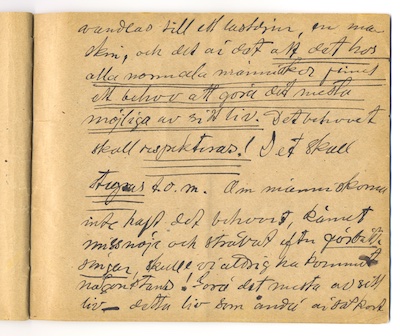 vandlas till ett lastdjur, en ma-
skin, och det är det att det hos
alla normala människor finnes
ett behov att göra det mesta
möjliga av sitt liv. Det behovet
skall respekteras! Det skall
t.o.m. Om människorna
inte haft det behovet, känt
missnöje och strävat efter förbätt-
ringar, skulle vi aldrig ha kommit
någonstans. Göra det mesta av sitt
liv - detta liv som ändå är så kort